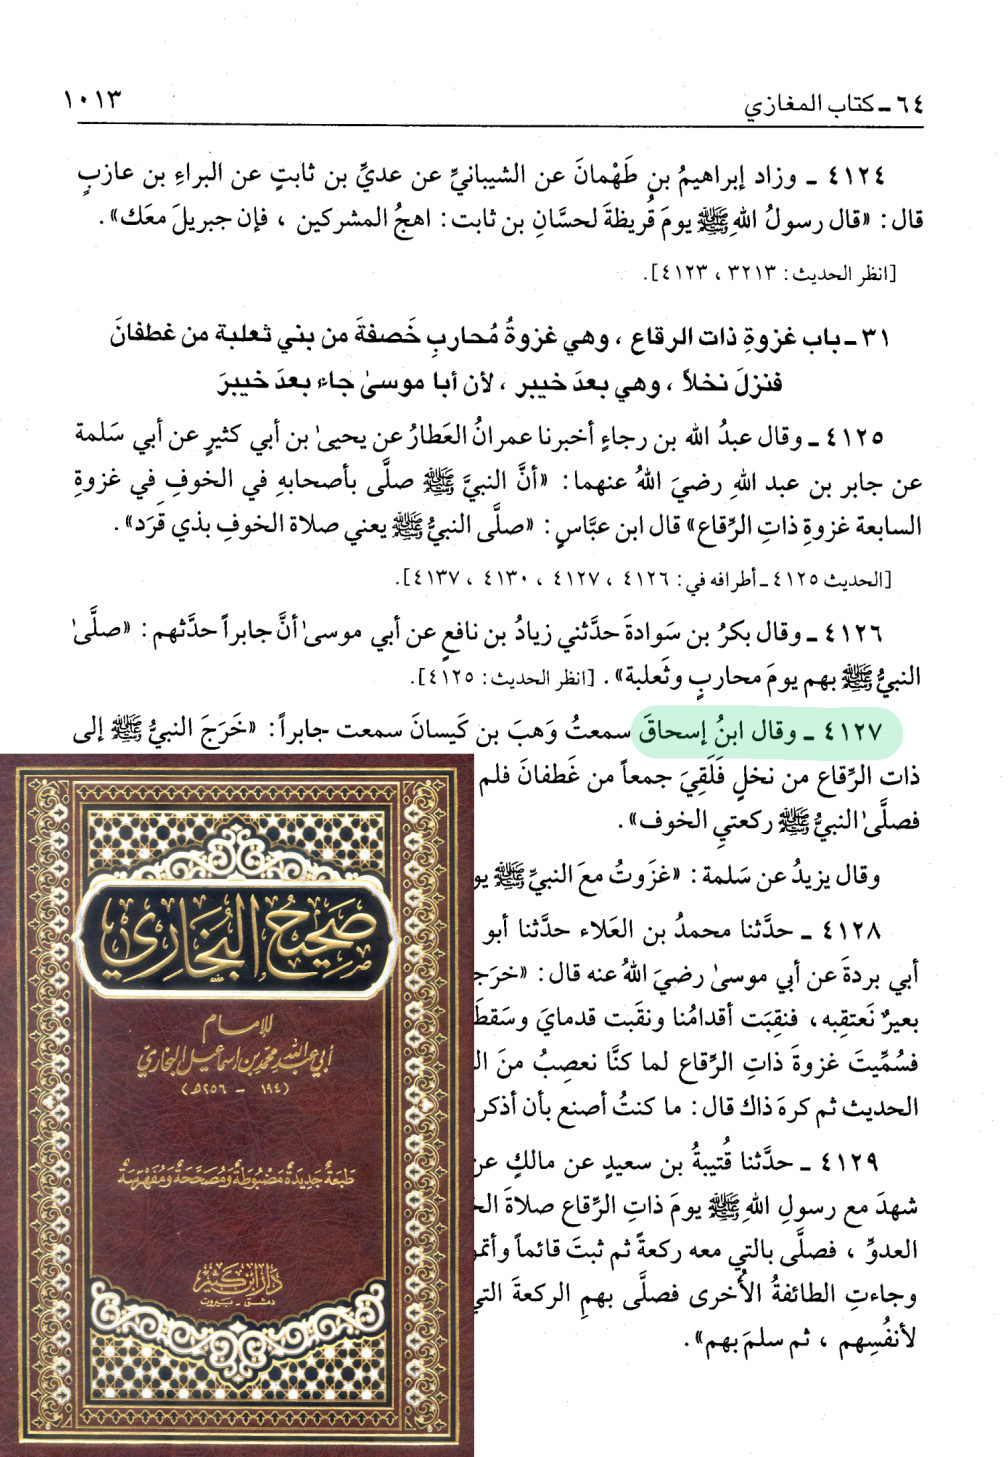 ٦٤ ـ كتاب المغازي
١٠١٣
٤١٢٤ ـ وزاد إبراهيمُ بن طَهْمانَ عن الشيبانيِّ عن عديِّ بن ثابتٍ عن البراءِ بن عازبٍ
قال: «قال رسولُ اللهِ ﷺ يومَ قُريظةَ لحسَّانِ بن ثابت: اهجُ المشركين ، فإن جبريلَ معَك».
[انظر الحديث: ٣٢١٣ ، ٤١٢٣].
٣١ ـ باب غزوةِ ذات الرقاع ، وهي غزوةُ مُحاربِ خَصفةَ من بني ثعلبة من غطفانَ
فنزلَ نخلاً ، وهي بعدَ خيبر ، لأن أبا موسىٰ جاء بعدَ خيبرَ
٤١٢٥ ـ وقال عبدُ الله بن رجاءٍ أخبرنا عمرانُ العَطارُ عن يحيىٰ بن أبي كثيرٍ عن أبي سَلمة
عن جابر بن عبد اللهِ رضيَ اللهُ عنهما: «أنَّ النبيَّ ﷺ صلَّى بأصحابهِ في الخوفِ في غزوةِ
السابعة غزوةِ ذاتِ الرِّقاع» قال ابن عبَّاسٍ: «صلَّى النبيُّ ﷺ يعني صلاة الخوفِ بذي قَرَد».
[الحديث ٤١٢٥ ـ أطرافه في: ٤١٢٦ ، ٤١٢٧ ، ٤١٣٠ ، ٤١٣٧].
٤١٢٦ ـ وقال بكرُ بن سَوادةَ حدَّثني زيادُ بن نافعٍ عن أبي موسىٰ أنَّ جابراً حدَّثهم: «صلَّىٰ
النبيُّ ﷺ بهم يومَ محاربٍ وثَعلبة». [انظر الحديث: ٤١٢٥].
٤١٢٧ ـ وقال ابنُ إسحاقَ سمعتُ وَهبَ بن كَيسانَ سمعت جابراً: «خَرَجَ النبيُّ ﷺ إلى
ذات الرِّقاع من نخلٍ فَلَقِيَ جمعاً من غَطفانَ فلم
فصلَّىٰ النبيُّ ﷺ ركعتيِ الخوف».
وقال يزيدُ عن سَلمة: «غزَوتُ معَ النبيِّ ﷺ يو
٤١٢٨ ـ حدَّثنا محمدُ بن العَلاء حدَّثنا أبو
أبي بردةَ عن أبي موسىٰ رضيَ اللهُ عنه قال: «خرَج
بعيرٌ نَعتقِبه، فنقِبَت أقدامُنا ونقَبت قدمايَ وسَقطَ
فسُمِّيتَ غزوةَ ذاتِ الرِّقاع لما كنَّا نعصِبُ منَ ال
الحديث ثم كرهَ ذاك قال: ما كنتُ أصنع بأن أذكر
٤١٢٩ ـ حدَّثنا قُتيبةُ بن سعيدٍ عن مالكٍ عن
شهدَ مع رسولِ اللهِ ﷺ يومَ ذاتِ الرِّقاع صلاةَ الخ
العدوِّ ، فصلَّى بالتي معه ركعةً ثم ثبتَ قائماً وأتمو
وجاءتِ الطائفةُ الأُخرى فصلَّى بهمِ الركعةَ التي
لأنفُسِهم ، ثم سلمَ بهم».
صَحِيحُ البُخَارِيِّ
للإمام
أبي عبد الله محمد بن إسماعيل البخاري
(١٩٤ - ٢٥٦هـ)
طَبعَةٌ جَدِيدَةٌ مَضْبُوطَةٌ وَمُصَحَّحَةٌ وَمُفَهْرَسَةٌ
دَارُ ابْنِ كَثِيرٍ
دمشق - بيروت